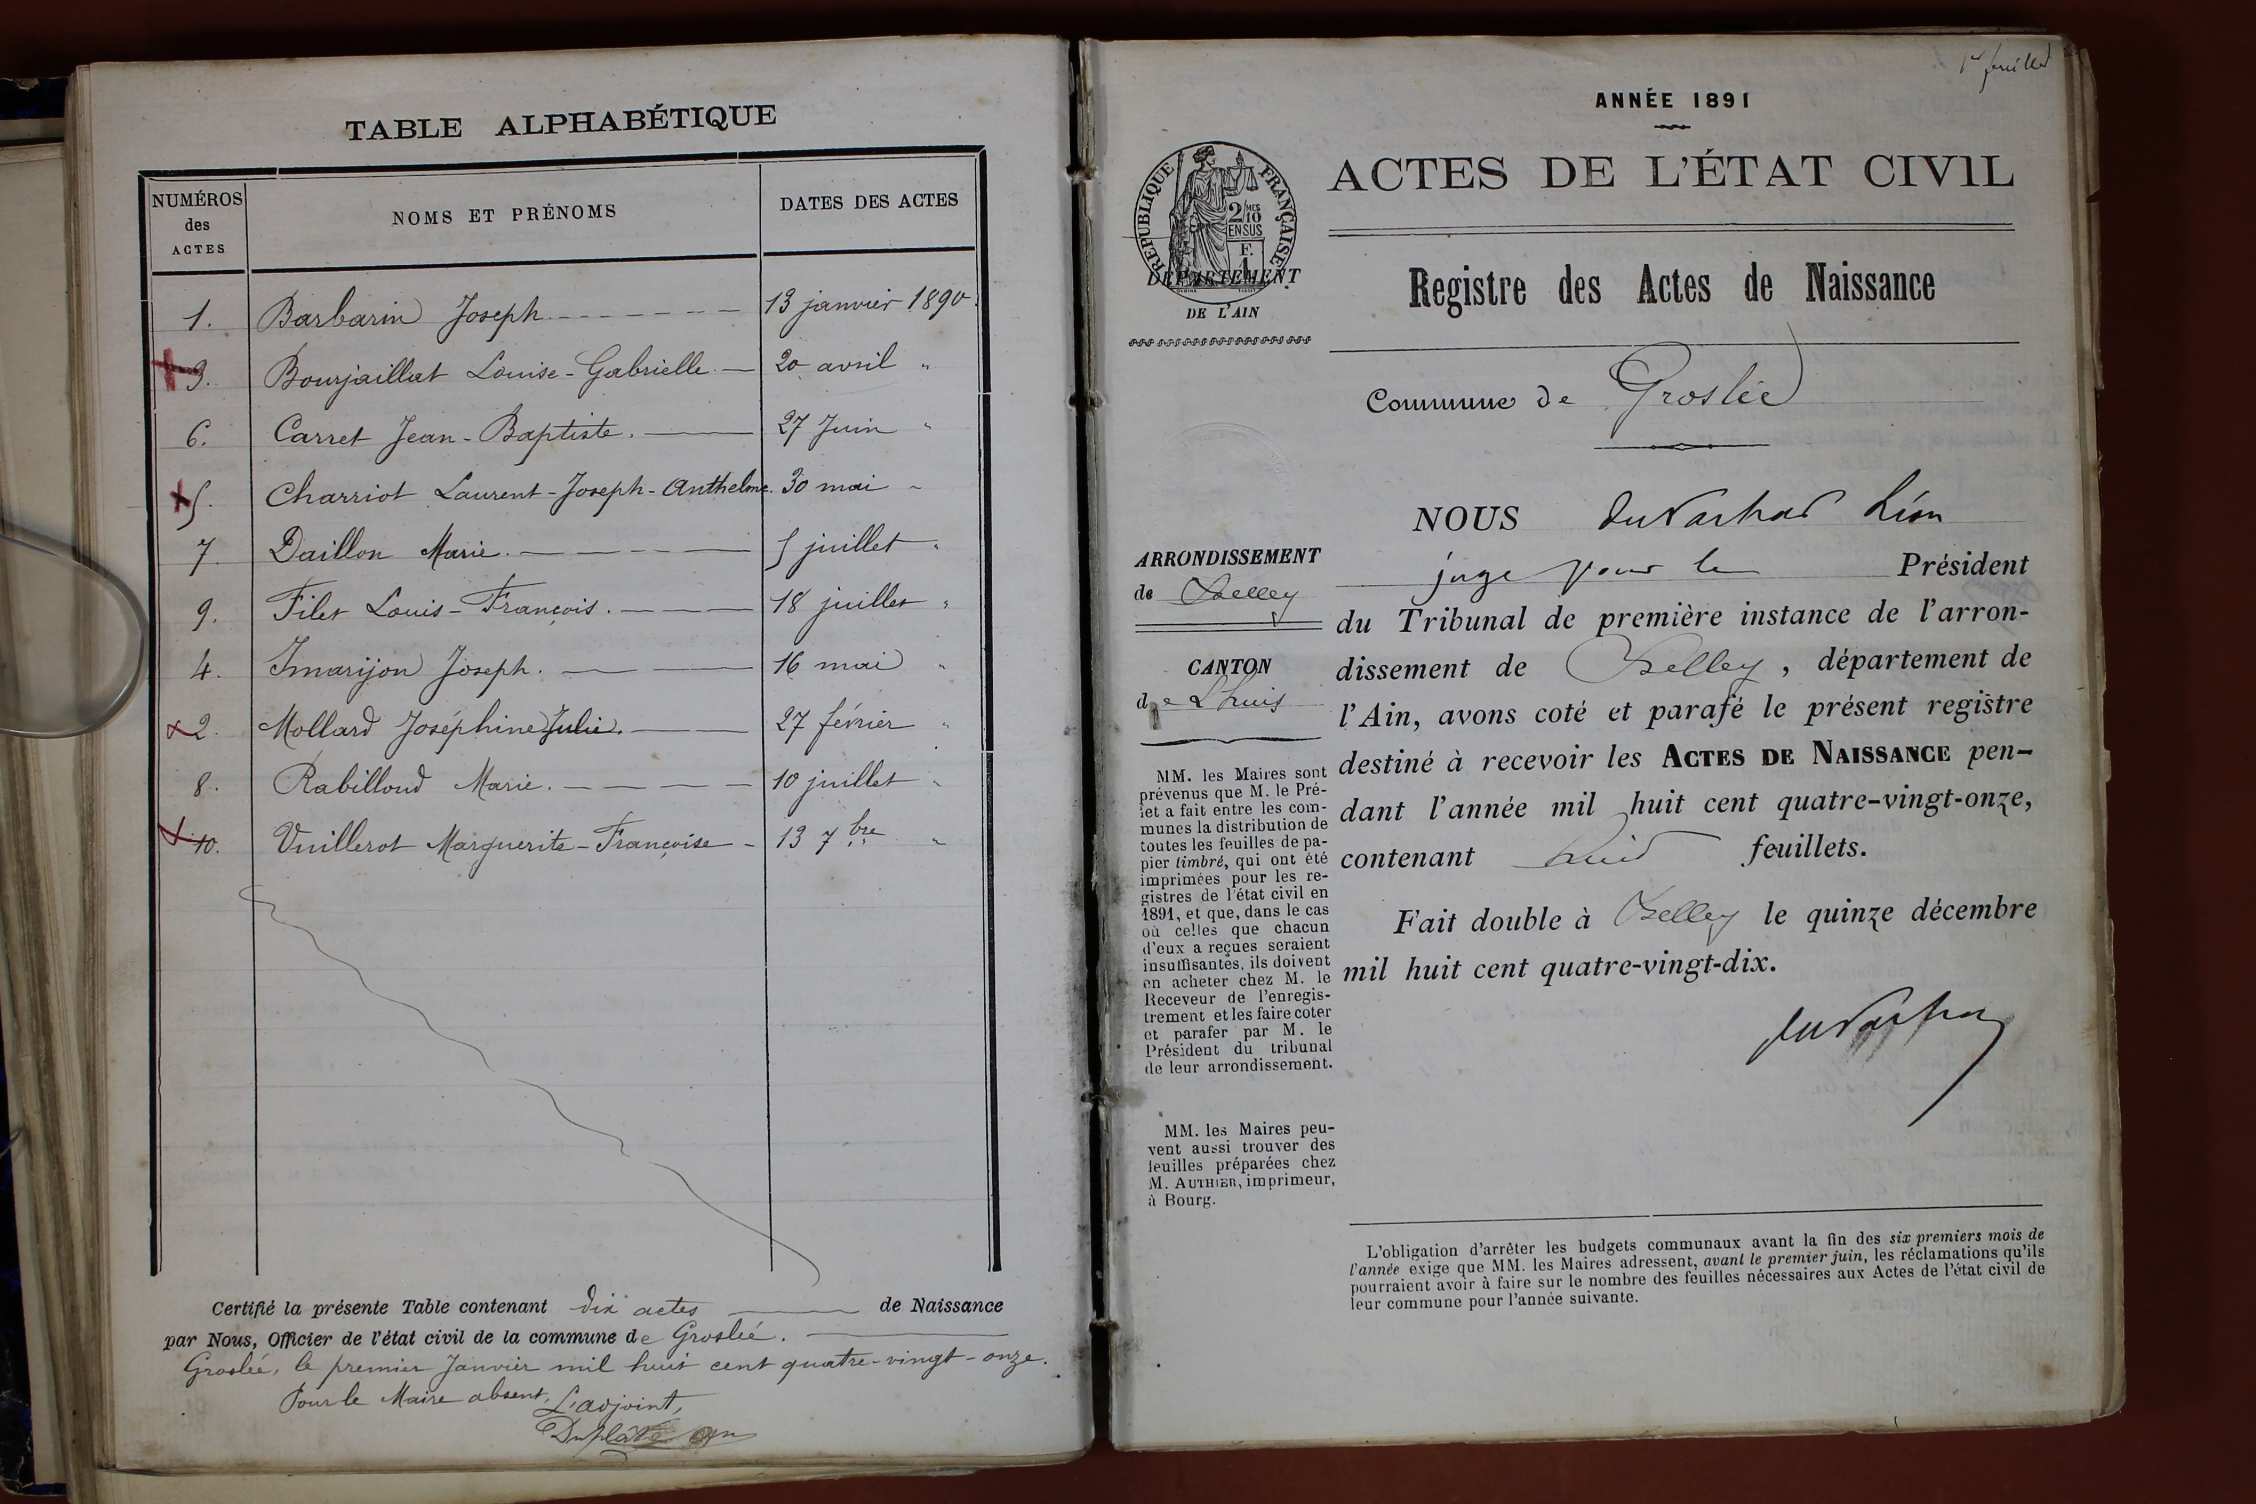 TABLE ALPHABÉTIQUE
NUMÉROS des ACTES
NOMS ET PRÉNOMS
DATES DES ACTES
1. Barbarin Joseph 13 janvier 1890.
3. Bourjaillat Louise-Gabrielle 20 avril "
6. Carret Jean-Baptiste. 27 Juin "
5. Charriot Laurent-Joseph-Anthelme. 30 mai "
7. Daillon Marie. 5 juillet "
9. Filet Louis-François. 18 juillet "
4. Imarijon Joseph. 16 mai "
2. Mollard Joséphine Julie. 27 février "
8. Rabilloud Marie. 10 juillet "
10. Vuillerot Marguerite-Françoise 13 7bre "
Certifié la présente Table contenant dix actes de Naissance
par Nous, Officier de l'état civil de la commune de Groslée.
Groslée, le premier Janvier mil huit cent quatre-vingt-onze.
Pour le Maire absent,
L'adjoint,
1er feuillet
ANNÉE 1891
ACTES DE L'ÉTAT CIVIL
RÉPUBLIQUE FRANÇAISE
2/10 MES
EN SUS
F.
1
DÉPARTEMENT
DE L'AIN
Registre des Actes de Naissance
Commune de Groslée
ARRONDISSEMENT
de Belley
CANTON
de Lhuis
MM. les Maires sont
prévenus que M. le Pré-
fet a fait entre les com-
munes la distribution de
toutes les feuilles de pa-
pier timbré, qui ont été
imprimées pour les re-
gistres de l'état civil en
1891, et que, dans le cas
où celles que chacun
d'eux a reçues seraient
insuffisantes, ils doivent
en acheter chez M. le
Receveur de l'enregis-
trement et les faire coter
et parafer par M. le
Président du tribunal
de leur arrondissement.
MM. les Maires peu-
vent aussi trouver des
feuilles préparées chez
M. AUTHIER, imprimeur,
à Bourg.
NOUS Léon
juge pour le Président
du Tribunal de première instance de l'arron-
dissement de Belley, département de
l'Ain, avons coté et parafé le présent registre
destiné à recevoir les ACTES DE NAISSANCE pen-
dant l'année mil huit cent quatre-vingt-onze,
contenant huit feuillets.
Fait double à Belley le quinze décembre
mil huit cent quatre-vingt-dix.
L'obligation d'arrêter les budgets communaux avant la fin des six premiers mois de
l'année exige que MM. les Maires adressent, avant le premier juin, les réclamations qu'ils
pourraient avoir à faire sur le nombre des feuilles nécessaires aux Actes de l'état civil de
leur commune pour l'année suivante.